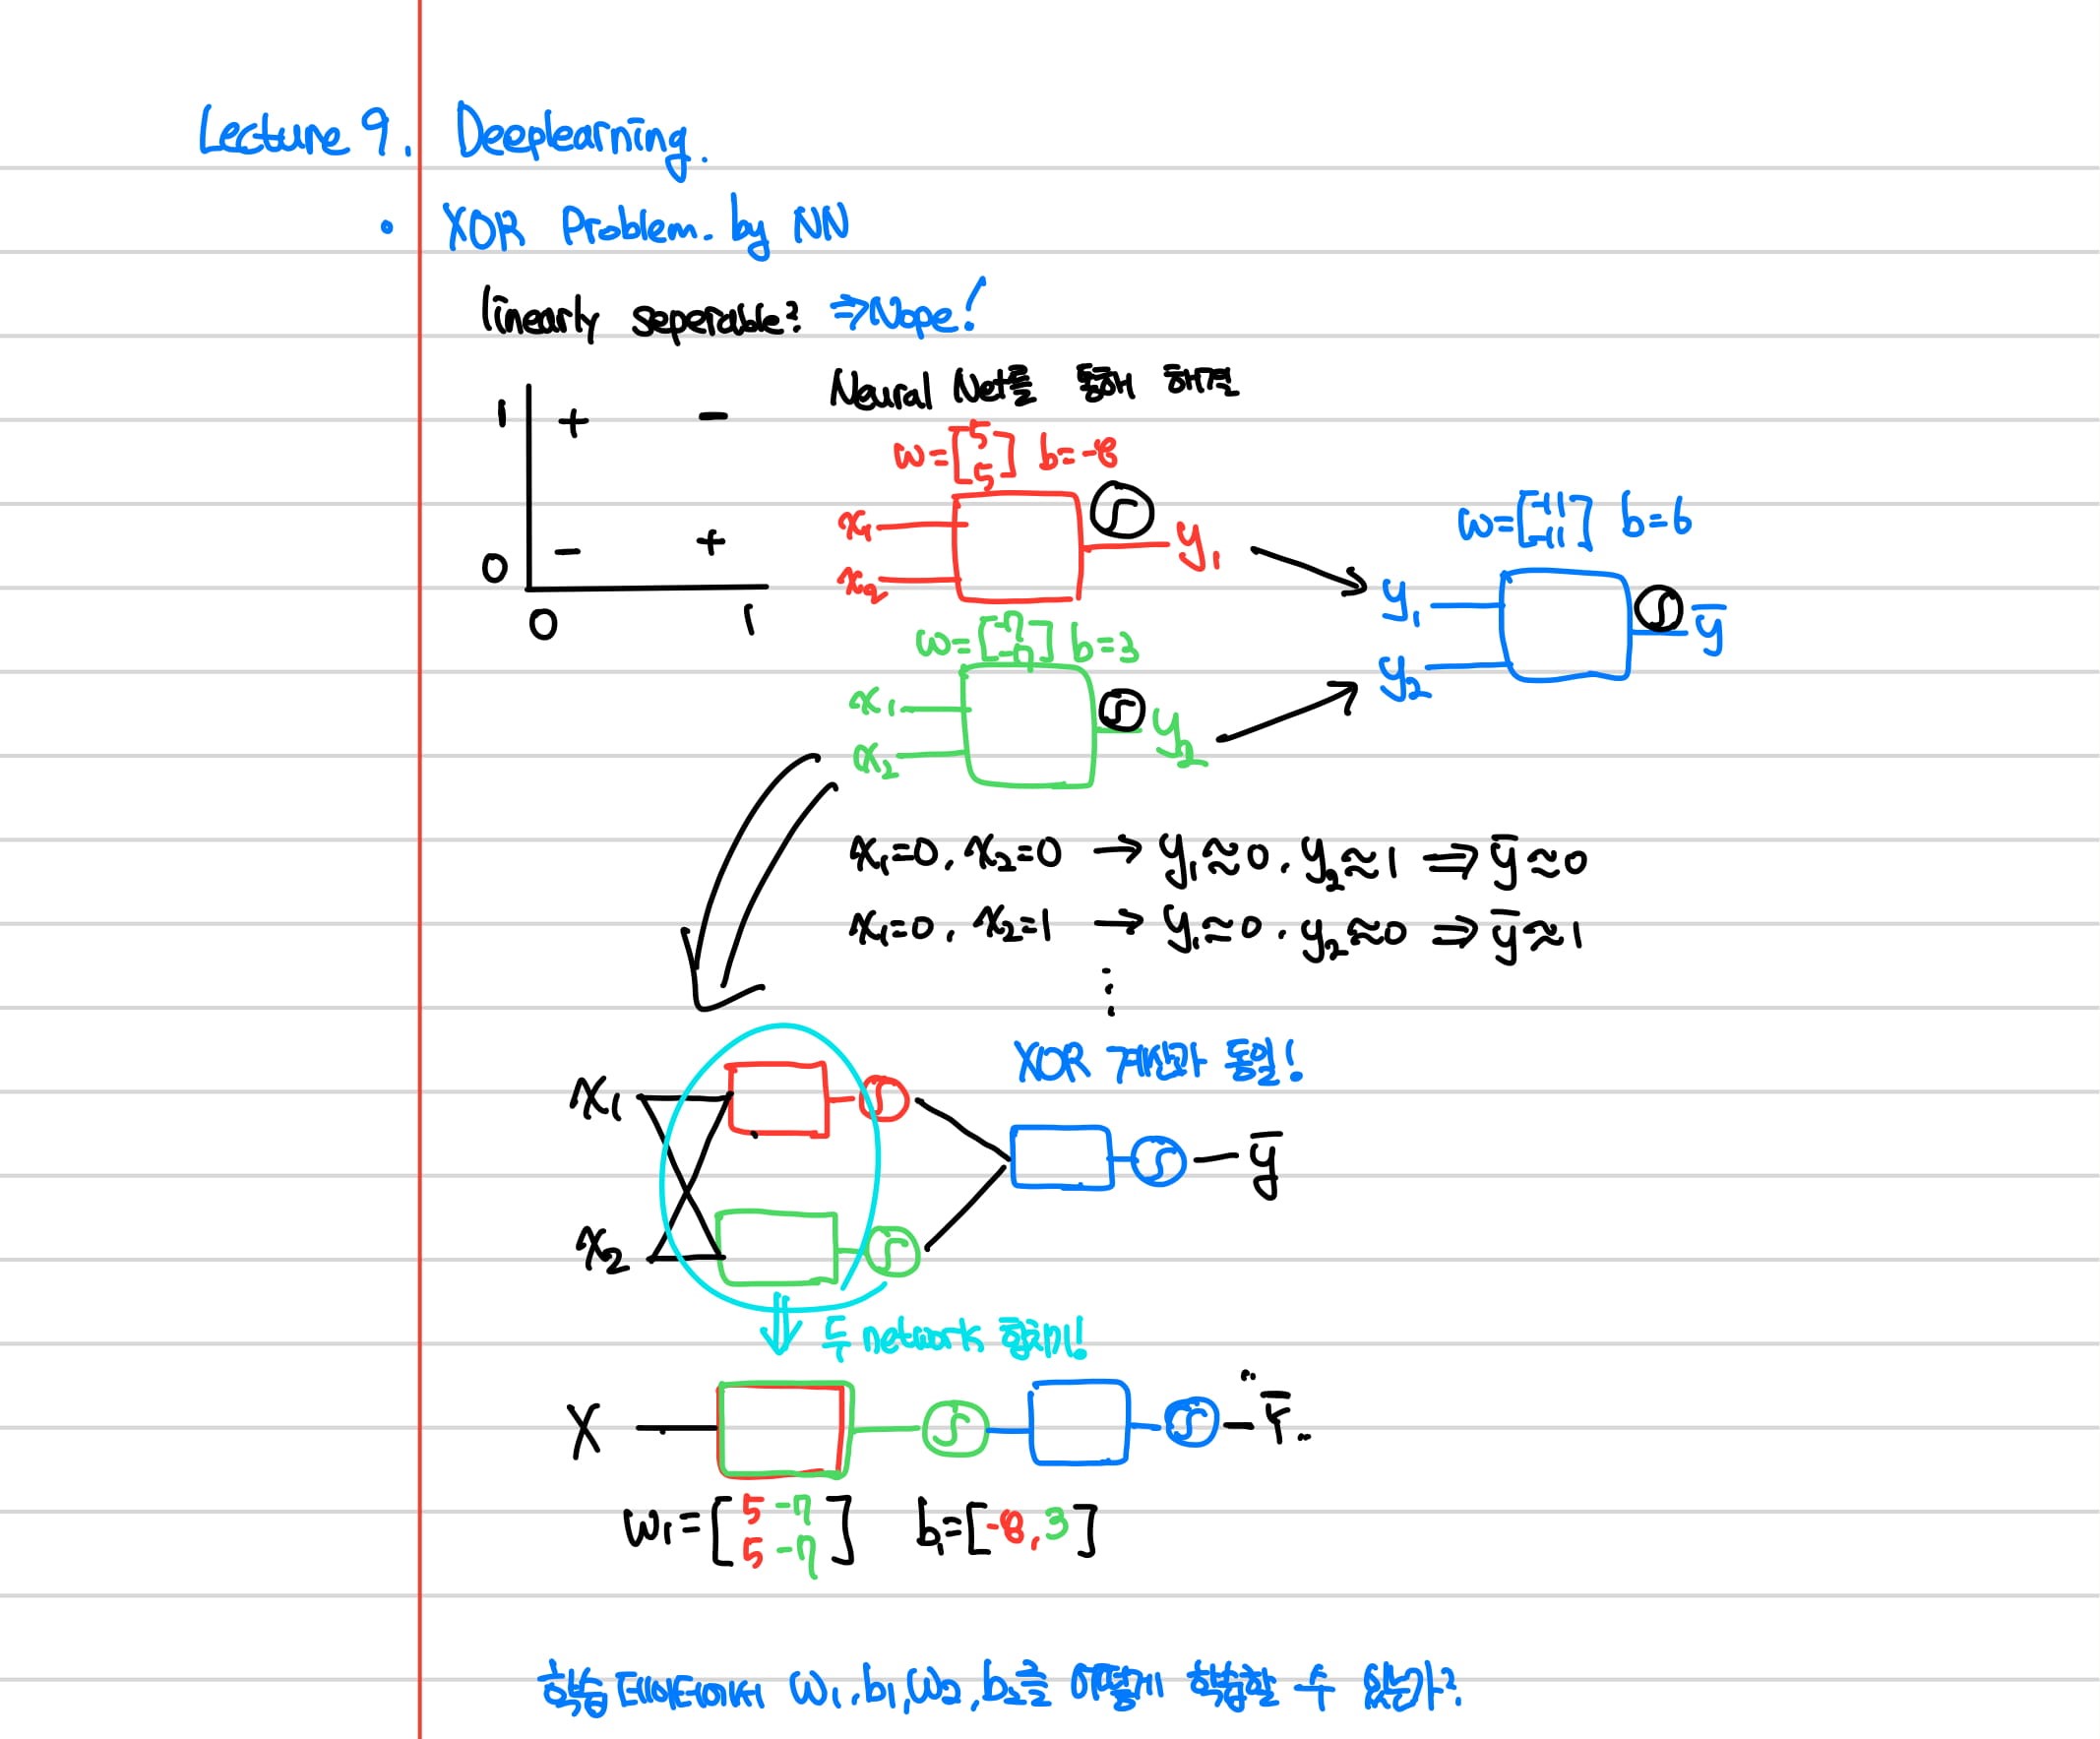 Lecture 9. Deeplearning.
• XOR Problem. by NN
linearly seperable? ⇒ Nope!
Neural Net을 통해 하면
1 + -
0 - +
0 1
w=[5 5] b=-8
x₁
x₂
S
y₁
w=[-7 -7] b=3
x₁
x₂
S
y₂
w=[-11 -11] b=6
y₁
y₂
S
y̅
x₁=0, x₂=0 → y₁≈0, y₂≈1 ⇒ y̅≈0
x₁=0, x₂=1 → y₁≈0, y₂≈0 ⇒ y̅≈1
⋮
XOR 동일!
x₁ S
S y̅
x₂ S
network
X S S Y̅
W₁=[5 -7
5 -7] b₁=[-8, 3]
학습 데이터에서 W₁, b₁, W₂, b₂를 어떻게 학습할 수 있을까?